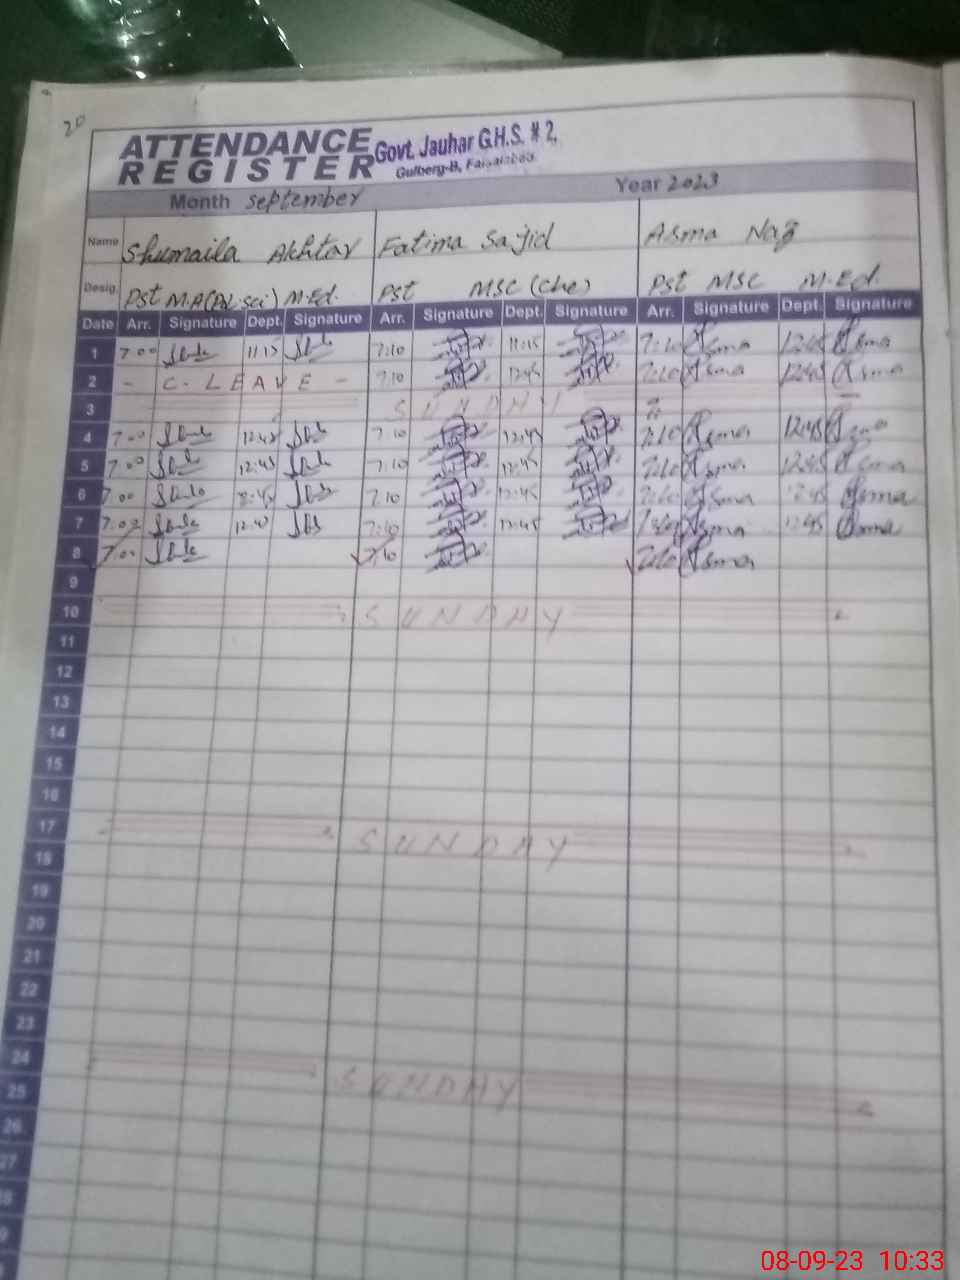 20
ATTENDANCE Govt. Jauhar G.H.S. # 2,
REGISTER Gulberg-B, Faisalabad
Month September Year 2023
Name Shumaila Akhtar Fatima Sajid Asma Naz
Desig. Pst M.A(Pol sci) M.Ed. Pst MSC (Che) Pst MSC M.Ed.
Date Arr. Signature Dept. Signature Arr. Signature Dept. Signature Arr. Signature Dept. Signature
1 7:00 11:15 7:10 11:15 7:10 Asma 12:45 Asma
2 - C. LEAVE - 7:10 12:45 7:10 Asma 12:45 Asma
3 SUNDAY
4 7:00 12:45 7:10 12:45 7:10 Asma 12:45
5 7:00 12:45 7:10 12:45 7:10 Asma 12:45 Asma
6 7:00 7:10 12:45 7:10 Asma 12:45 Asma
7 7:10 12:45 Asma 12:45 Asma
8 7:00 7:10 7:10 Asma
9
10 SUNDAY
11
12
13
14
15
16
17 SUNDAY
18
19
20
21
22
23
24 SUNDAY
25
26
27
08-09-23 10:33